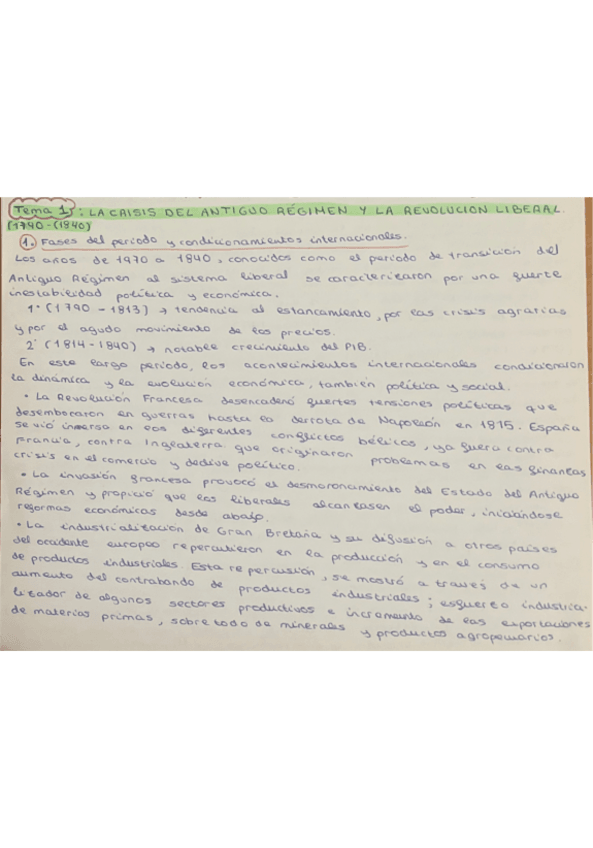 Tema 1: LA CRISIS DEL ANTIGUO RÉGIMEN Y LA REVOLUCION LIBERAL.
(1790-(1840)
1. Fases del periodo y condicionamientos internacionales.
Los años de 1970 a 1840, conocidos como el periodo de transición del
Antiguo Régimen al sistema liberal se caracterizaron por una fuerte
inestabilidad política y económica.
1º (1790 - 1813) → tendencia al estancamiento, por las crisis agrarias
y por el agudo movimiento de los precios.
2º (1814-1840) → notable crecimiento del PIB.
En este largo periodo, los acontecimientos internacionales condicionaron
la dinámica y la evolución económica, también política y social.
• La Revolución Francesa desencadenó fuertes tensiones políticas que
desembocaron en guerras hasta la derrota de Napoleón en 1815. España
se vió inmersa en los diferentes conflictos bélicos, ya fuera contra
Francia, contra Inglaterra que originaron problemas en las finanzas,
crisis en el comercio y declive político.
• La invasión francesa provocó el desmoronamiento del Estado del Antiguo
Régimen y propició que los liberales alcanzasen el poder, iniciándose
reformas económicas desde abajo.
• La industrialización de Gran Bretaña y su difusión a otros países
del occidente europeo repercutieron en la producción y en el consumo
de productos industriales. Esta repercusión, se mostró a través de un
aumento del contrabando de productos industriales; esfuerzo industria-
lizador de algunos sectores productivos e incremento de las exportaciones
de materias primas, sobre todo de minerales y productos agropecuarios.